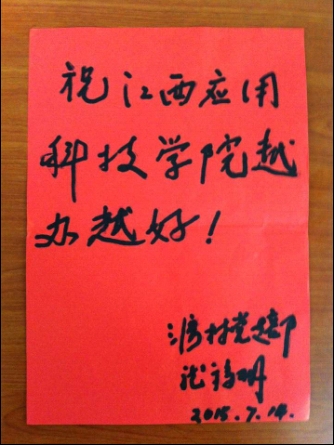 祝江西应用
科技学院越
办越好!
村党支部
2015.7.14.